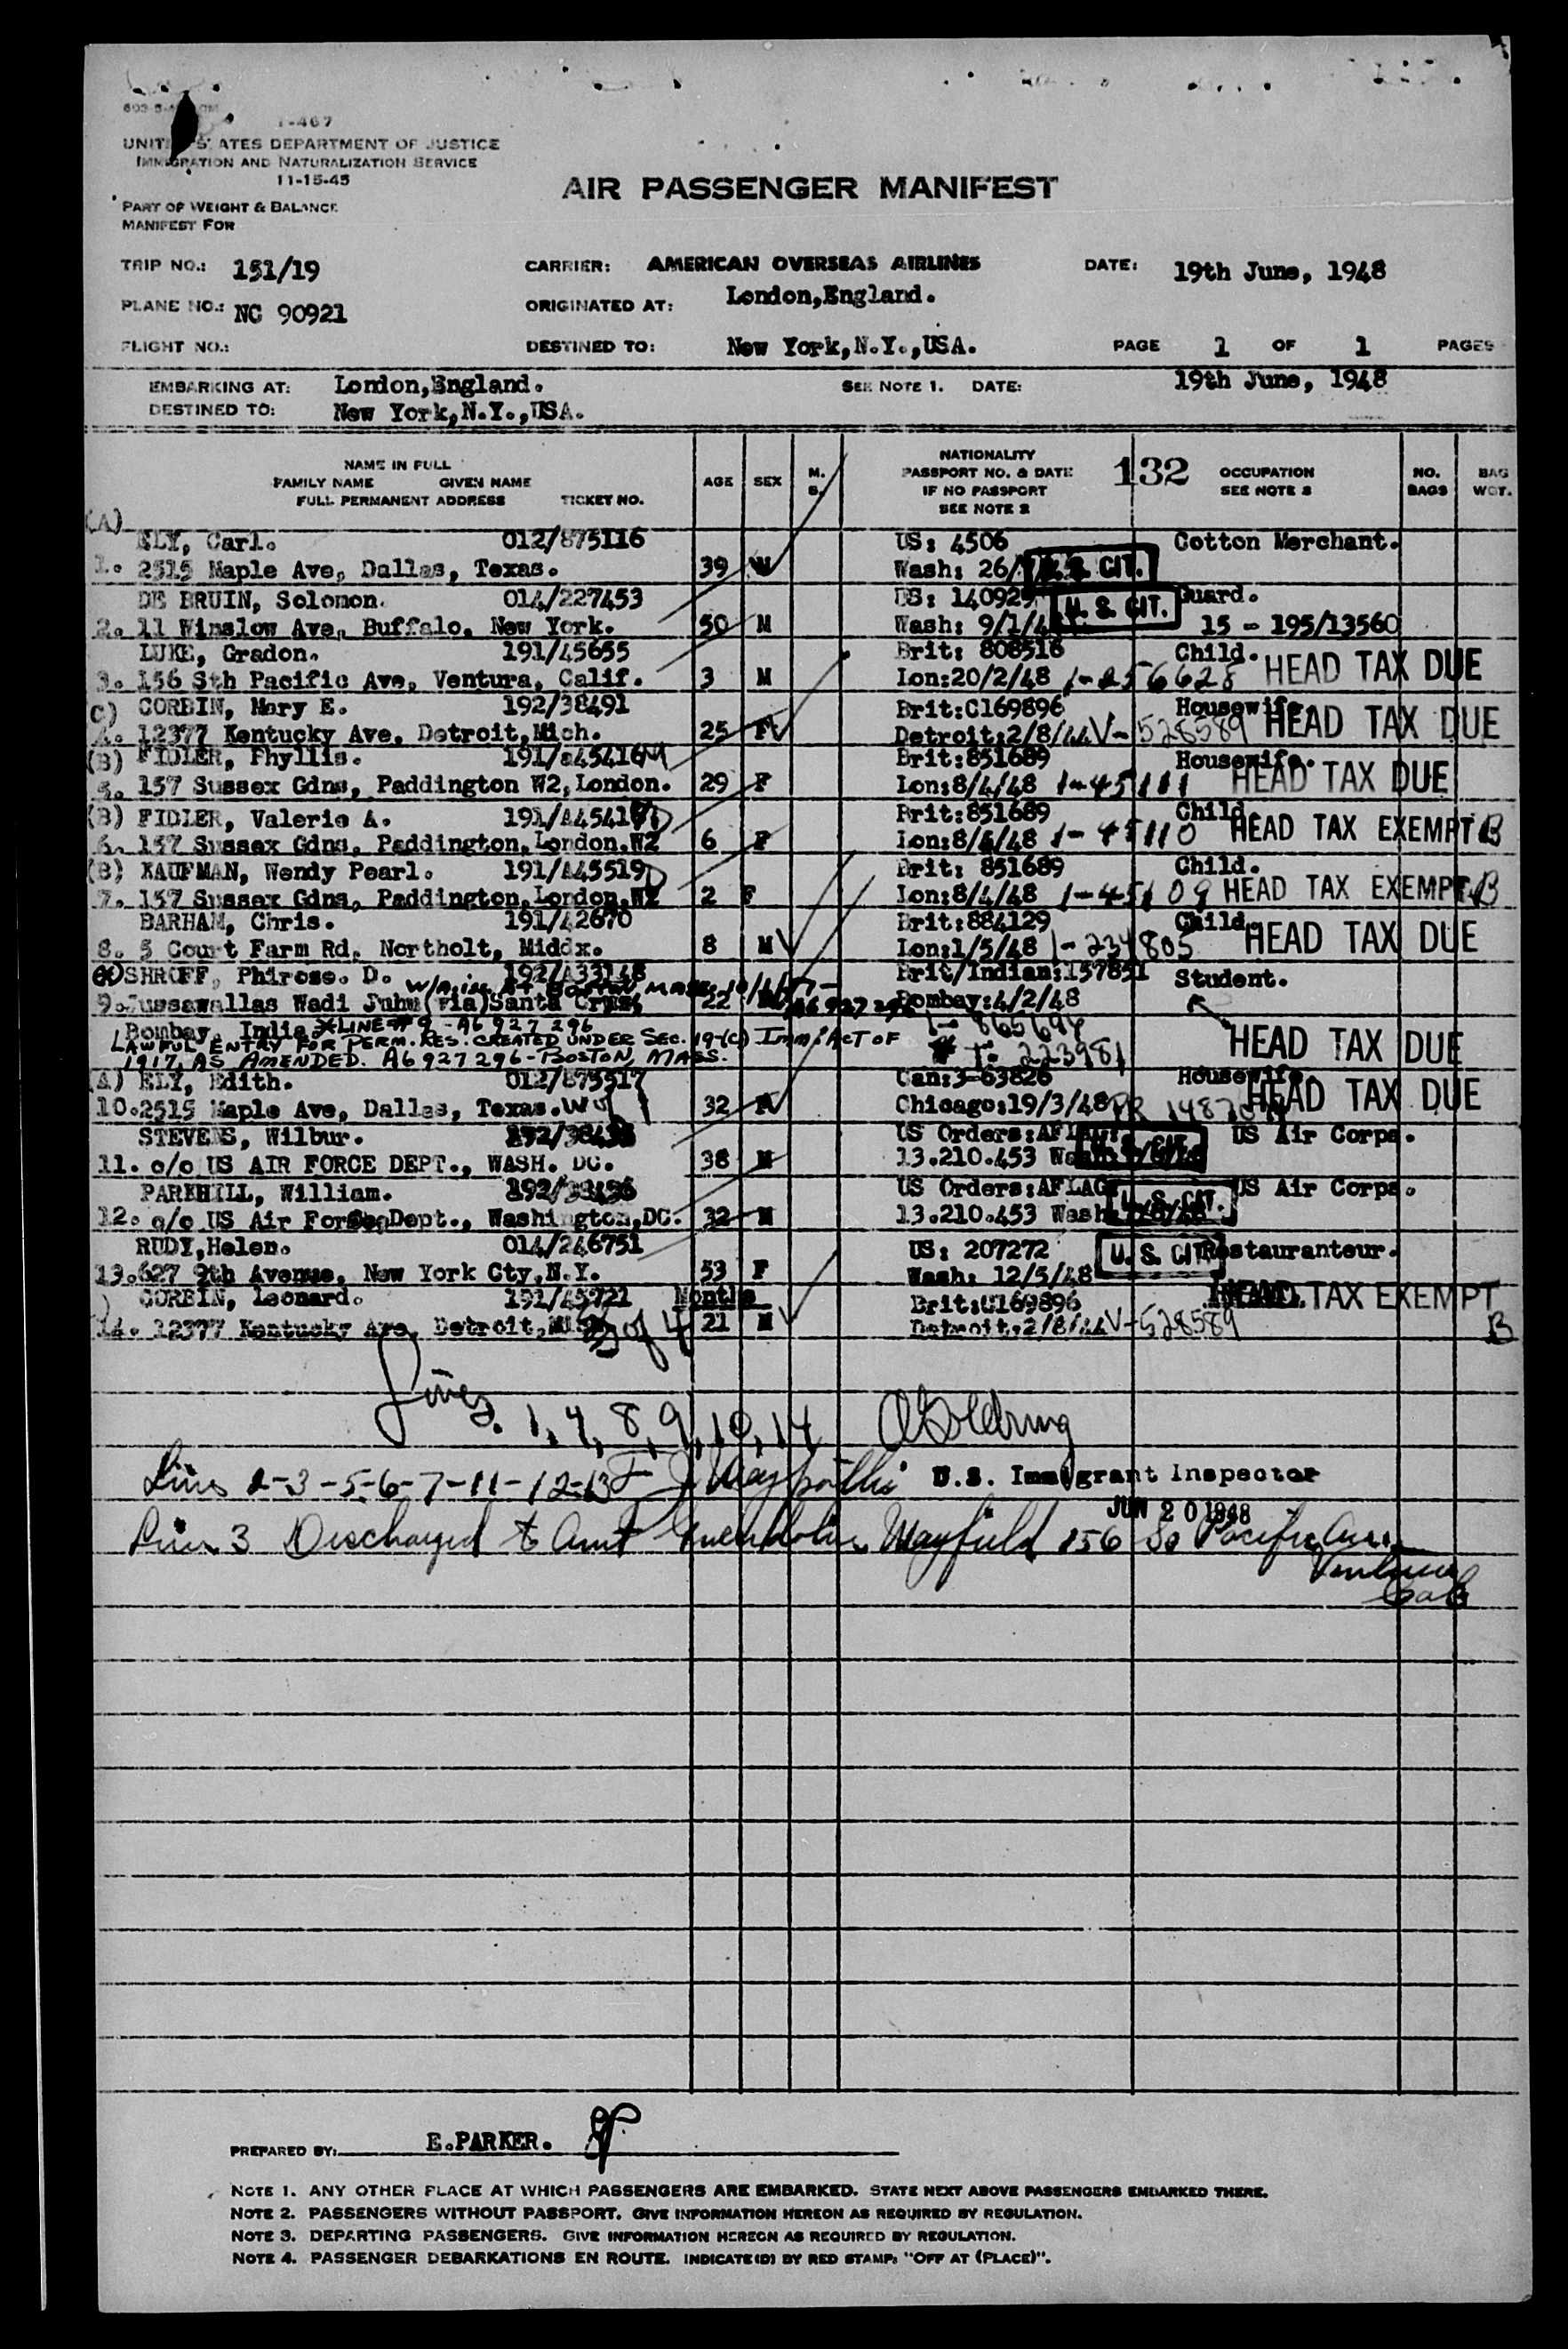 I-467
UNITED STATES DEPARTMENT OF JUSTICE
IMMIGRATION AND NATURALIZATION SERVICE
11-15-45
PART OF WEIGHT & BALANCE
MANIFEST FOR
AIR PASSENGER MANIFEST
TRIP NO.: 151/19 CARRIER: AMERICAN OVERSEAS AIRLINES DATE: 19th June, 1948
PLANE NO.: NC 90921 ORIGINATED AT: London,England.
FLIGHT NO.: DESTINED TO: New York,N.Y.,USA. PAGE 1 OF 1 PAGES
EMBARKING AT: London,England. SEE NOTE 1. DATE: 19th June, 1948
DESTINED TO: New York,N.Y.,USA.
NAME IN FULL
FAMILY NAME GIVEN NAME
FULL PERMANENT ADDRESS TICKET NO.
AGE SEX M. S.
NATIONALITY
PASSPORT NO. & DATE
IF NO PASSPORT
SEE NOTE 2
132 OCCUPATION
SEE NOTE 3
NO. BAGS
BAG WGT.
(A)
ELY, Carl. 012/875116 US: 4506 Cotton Merchant.
1. 2515 Maple Ave, Dallas, Texas. 39 M Wash: 26/ U. S. CIT.
DE BRUIN, Solomon. 014/227453 US: 140929 U. S. CIT. Guard.
2. 11 Winslow Ave, Buffalo, New York. 50 M Wash: 9/1/4 15 - 195/13560
LUKE, Gradon. 191/45655 Brit: 808516 Child. HEAD TAX DUE
3. 156 Sth Pacific Ave, Ventura, Calif. 3 M Lon:20/2/48 1-256628
(C) CORBIN, Mary E. 192/38491 Brit:C169896 Housewife. HEAD TAX DUE
4. 12377 Kentucky Ave, Detroit,Mich. 25 F Detroit:2/8/44 V-528589
(B) FIDLER, Phyllis. 191/a45416 Brit:851689 Housewife. HEAD TAX DUE
5. 157 Sussex Gdns, Paddington W2,London. 29 F Lon:8/4/48 1-45111
(B) FIDLER, Valerie A. 191/A4541 Brit:851689 Child. HEAD TAX EXEMPT B
6. 157 Sussex Gdns, Paddington,London,W2 6 F Lon:8/4/48 1-45110
(B) KAUFMAN, Wendy Pearl. 191/A45519 Brit: 851689 Child.
7. 157 Sussex Gdns, Paddington,London,W2 2 F Lon:8/4/48 1-45109 HEAD TAX EXEMPT B
BARHAM, Chris. 191/42670 Brit:884129 Child. HEAD TAX DUE
8. 5 Court Farm Rd, Northolt, Middx. 8 M Lon:1/5/48 1-234805
SHROFF, Phirose. D. 192/A33148 Brit/Indian:157851 Student.
9. Jussawallas Wadi Juhu(via)Santa Cruz, 22 A6927296 Bombay:4/2/48
Bombay, India *LINE #9 - A6 927 296 1-865694 HEAD TAX DUE
LAWFUL ENTRY FOR PERM. RES. CREATED UNDER SEC. 19-(C) IMM. ACT OF
1917, AS AMENDED. A6 927 296 - BOSTON, MASS. 223981
(A) ELY, Edith. 012/875517 Can:3-63826 Housewife. HEAD TAX DUE
10. 2515 Maple Ave, Dallas, Texas. 32 F Chicago:19/3/48
STEVENS, Wilbur. US Orders:AFLAG US Air Corps.
11. c/o US AIR FORCE DEPT., WASH. DC. 38 M 13.210.453 Wash U. S. CIT.
PARKHILL, William. US Orders:AFLAG US Air Corps.
12. c/o US Air Force Dept., Washington,DC. 32 M 13.210.453 Wash U. S. CIT.
RUDY,Helen. 014/246751 US: 207272 U. S. CIT. Restauranteur.
13. 627 9th Avenue, New York Cty,N.Y. 53 F Wash: 12/5/48
CORBIN, Leonard. 191/45721 Months Brit:C169896 HEAD TAX EXEMPT
14. 12377 Kentucky Ave, Detroit, 21 M Detroit,2/8/44 V-528589 B
Lines. 1, 4, 8, 9, 10, 14 Goldring
Lines 2-3-5-6-7-11-12-13 U.S. Immigrant Inspector
JUN 20 1948
Line 3 Discharged to Aunt Mayfield 156 So Pacific Ave.
Ventura
Calif
PREPARED BY: E.PARKER.
NOTE 1. ANY OTHER PLACE AT WHICH PASSENGERS ARE EMBARKED. STATE NEXT ABOVE PASSENGERS EMBARKED THERE.
NOTE 2. PASSENGERS WITHOUT PASSPORT. GIVE INFORMATION HEREON AS REQUIRED BY REGULATION.
NOTE 3. DEPARTING PASSENGERS. GIVE INFORMATION HEREON AS REQUIRED BY REGULATION.
NOTE 4. PASSENGER DEBARKATIONS EN ROUTE. INDICATE(D) BY RED STAMP: "OFF AT (PLACE)".